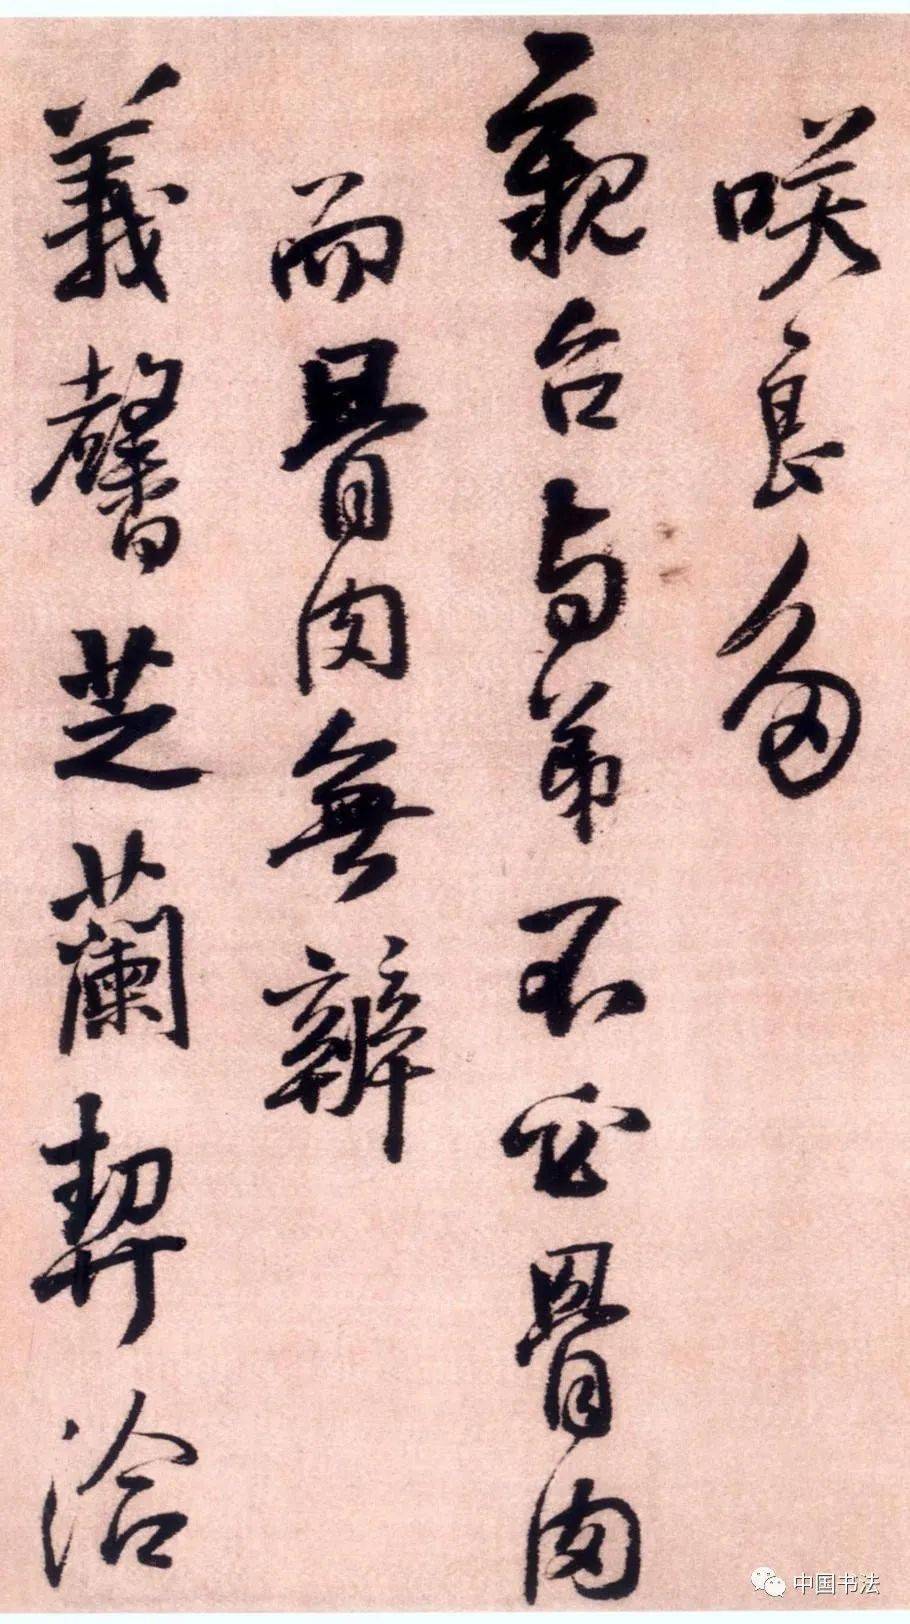 咲良多
親台与弟不骨肉
而骨肉無辨
義馨芝蘭契洽
中国书法